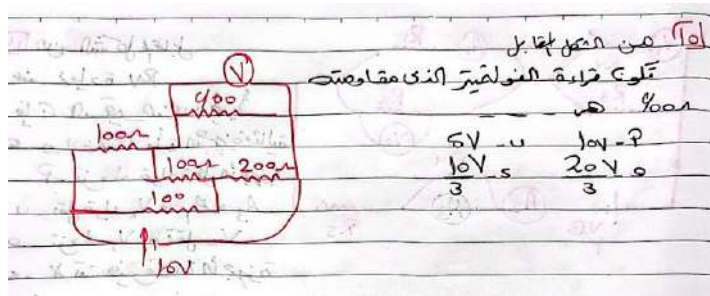 من الشكل المقابل
تكون قراءة الفولتميتر الذى مقاومته
400Ω هى ----
10V -P
5V -u
20V/3
10V/3
V
400
100Ω
100Ω 200Ω
100
10V